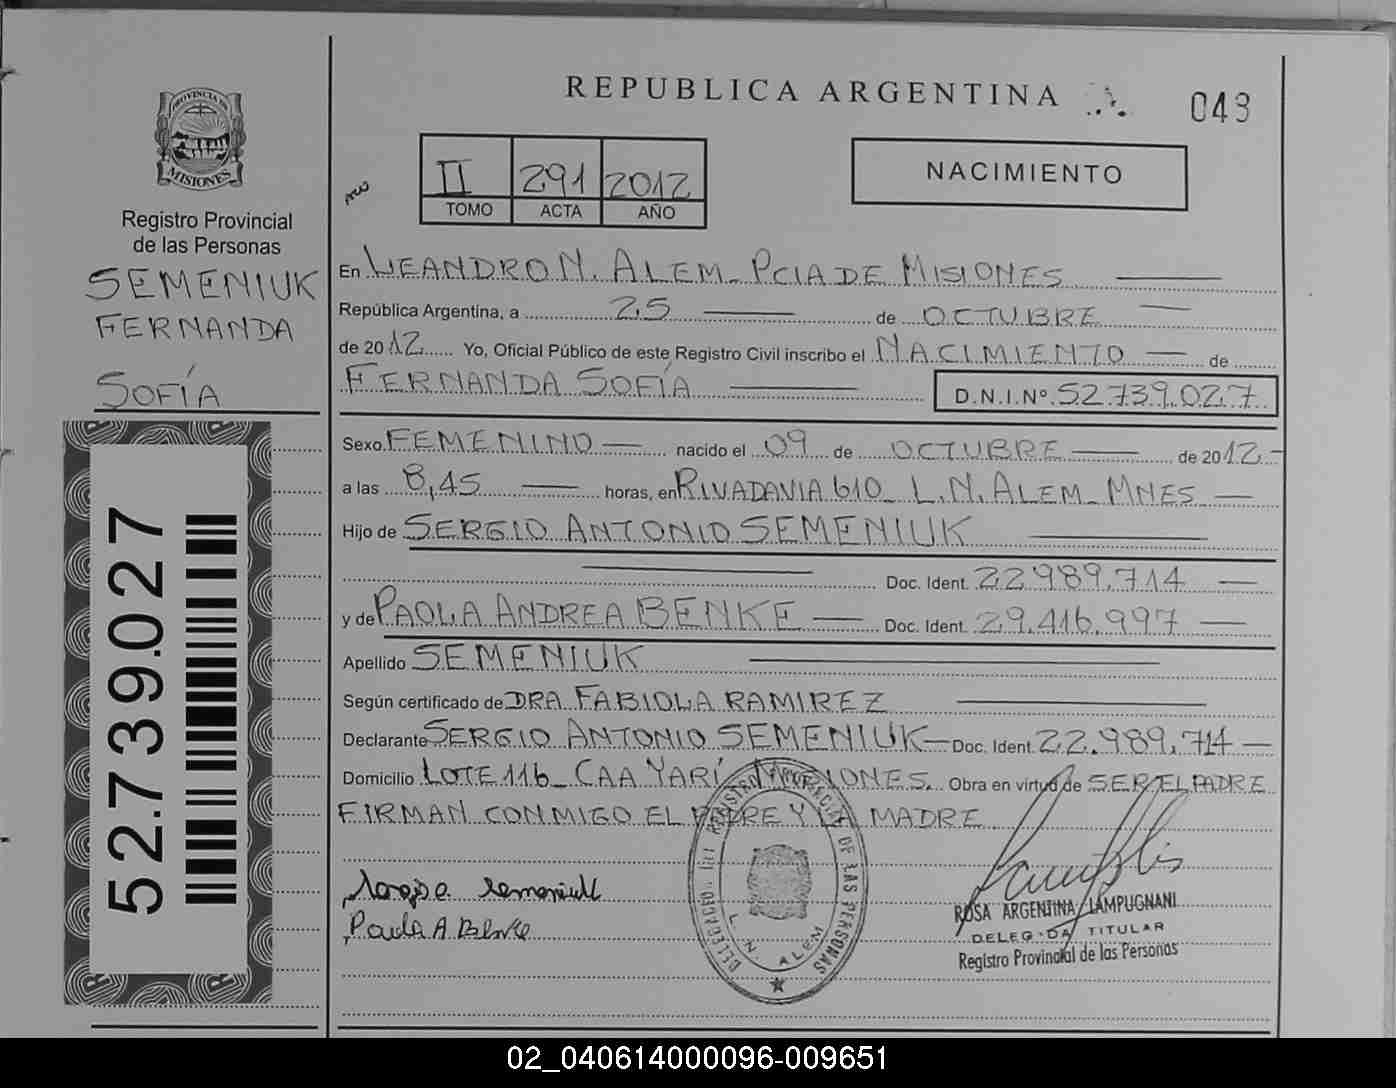 REPUBLICA ARGENTINA
043
PROVINCIA DE
MISIONES
Registro Provincial
de las Personas
SEMENIUK
FERNANDA
SOFÍA
52.739.027
II 291 2012
TOMO ACTA AÑO
NACIMIENTO
En LEANDRO N. ALEM_ PCIA DE MISIONES
República Argentina, a 25 de OCTUBRE
de 2012 Yo, Oficial Público de este Registro Civil inscribo el NACIMIENTO de
FERNANDA SOFÍA D.N.I.Nº. 52.739.027
Sexo FEMENINO nacido el 09 de OCTUBRE de 2012
a las 8,45 horas, en RIVADAVIA 610_ L.N. ALEM_ MNES
Hijo de SERGIO ANTONIO SEMENIUK
Doc. Ident. 22.989.714
y de PAOLA ANDREA BENKE Doc. Ident. 29.416.997
Apellido SEMENIUK
Según certificado de DRA FABIOLA RAMIREZ
Declarante SERGIO ANTONIO SEMENIUK Doc. Ident. 22.989.714
Domicilio LOTE 116_ CAA YARÍ_ MISIONES. Obra en virtud de SER EL PADRE
FIRMAN CONMIGO EL PADRE Y LA MADRE
Semeniuk
Paola A Benke
DELEGACION DEL REGISTRO PROVINCIAL DE LAS PERSONAS
L. N. ALEM
ROSA ARGENTINA LAMPUGNANI
DELEGADA TITULAR
Registro Provincial de las Personas
02_040614000096-009651